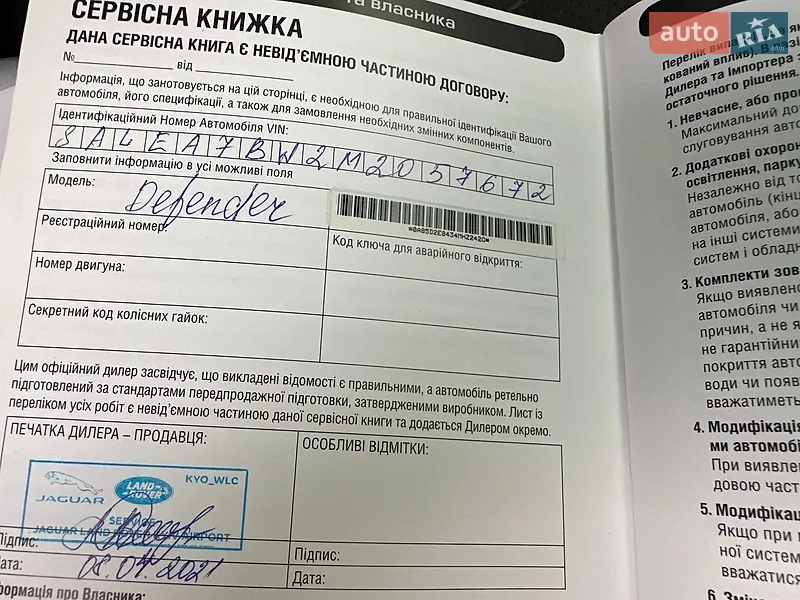 та власника
СЕРВІСНА КНИЖКА
ДАНА СЕРВІСНА КНИГА Є НЕВІД'ЄМНОЮ ЧАСТИНОЮ ДОГОВОРУ:
№ від
Інформація, що занотовується на цій сторінці, є необхідною для правильної ідентифікації Вашого
автомобіля, його специфікації, а також для замовлення необхідних змінних компонентів.
Ідентифікаційний Номер Автомобіля VIN:
SALEA7BW2M2057672
Заповнити інформацію в усі можливі поля
Модель: Defender
*0A85D2E8434MHZ2420*
Реєстраційний номер:
Код ключа для аварійного відкриття:
Номер двигуна:
Секретний код колісних гайок:
Цим офіційний дилер засвідчує, що викладені відомості є правильними, а автомобіль ретельно
підготовлений за стандартами передпродажної підготовки, затвердженими виробником. Лист із
переліком усіх робіт є невід'ємною частиною даної сервісної книги та додається Дилером окремо.
ПЕЧАТКА ДИЛЕРА – ПРОДАВЦЯ:
ОСОБЛИВІ ВІДМІТКИ:
KYO_WLC
JAGUAR
LAND-
ROVER
SERVICE
JAGUAR LAND ROVER AIRPORT
Підпис:
Дата: 08.04.2021
Підпис:
Дата:
формація про Власника:
auto RIA.com
Перелік випа
кований вплив). В
Дилера та Імпортера з
остаточного рішення.
1. Невчасне, або про
Максимальний до
слуговування авто
2. Додаткові охорон
освітлення, парку
Незалежно від то
автомобіль (кінц
автомобіля, або
на інші системи
систем і обладн
3. Комплекти зов
Якщо виявлено
автомобіля чи
причин, а не я
не гарантійни
покриття авто
води чи появ
вважатиметь
4. Модифікація
ми автомобі
При виявлен
довою част
5. Модифікац
Якщо при п
ної систем
вважатися
6. Зміна